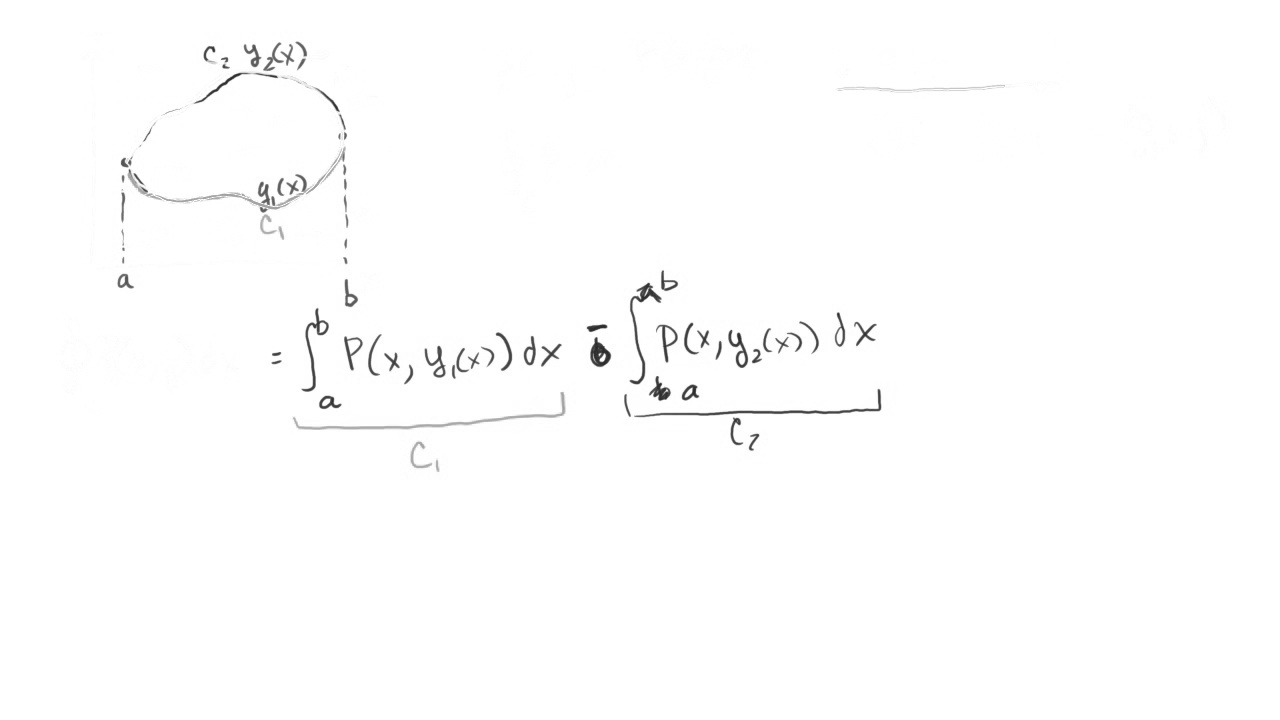 C₂ y₂(x)
y₁(x)
C₁
a
b
= ∫ₐᵇ P(x, y₁(x)) dx − ∫ₐᵇ P(x, y₂(x)) dx
C₁ C₂